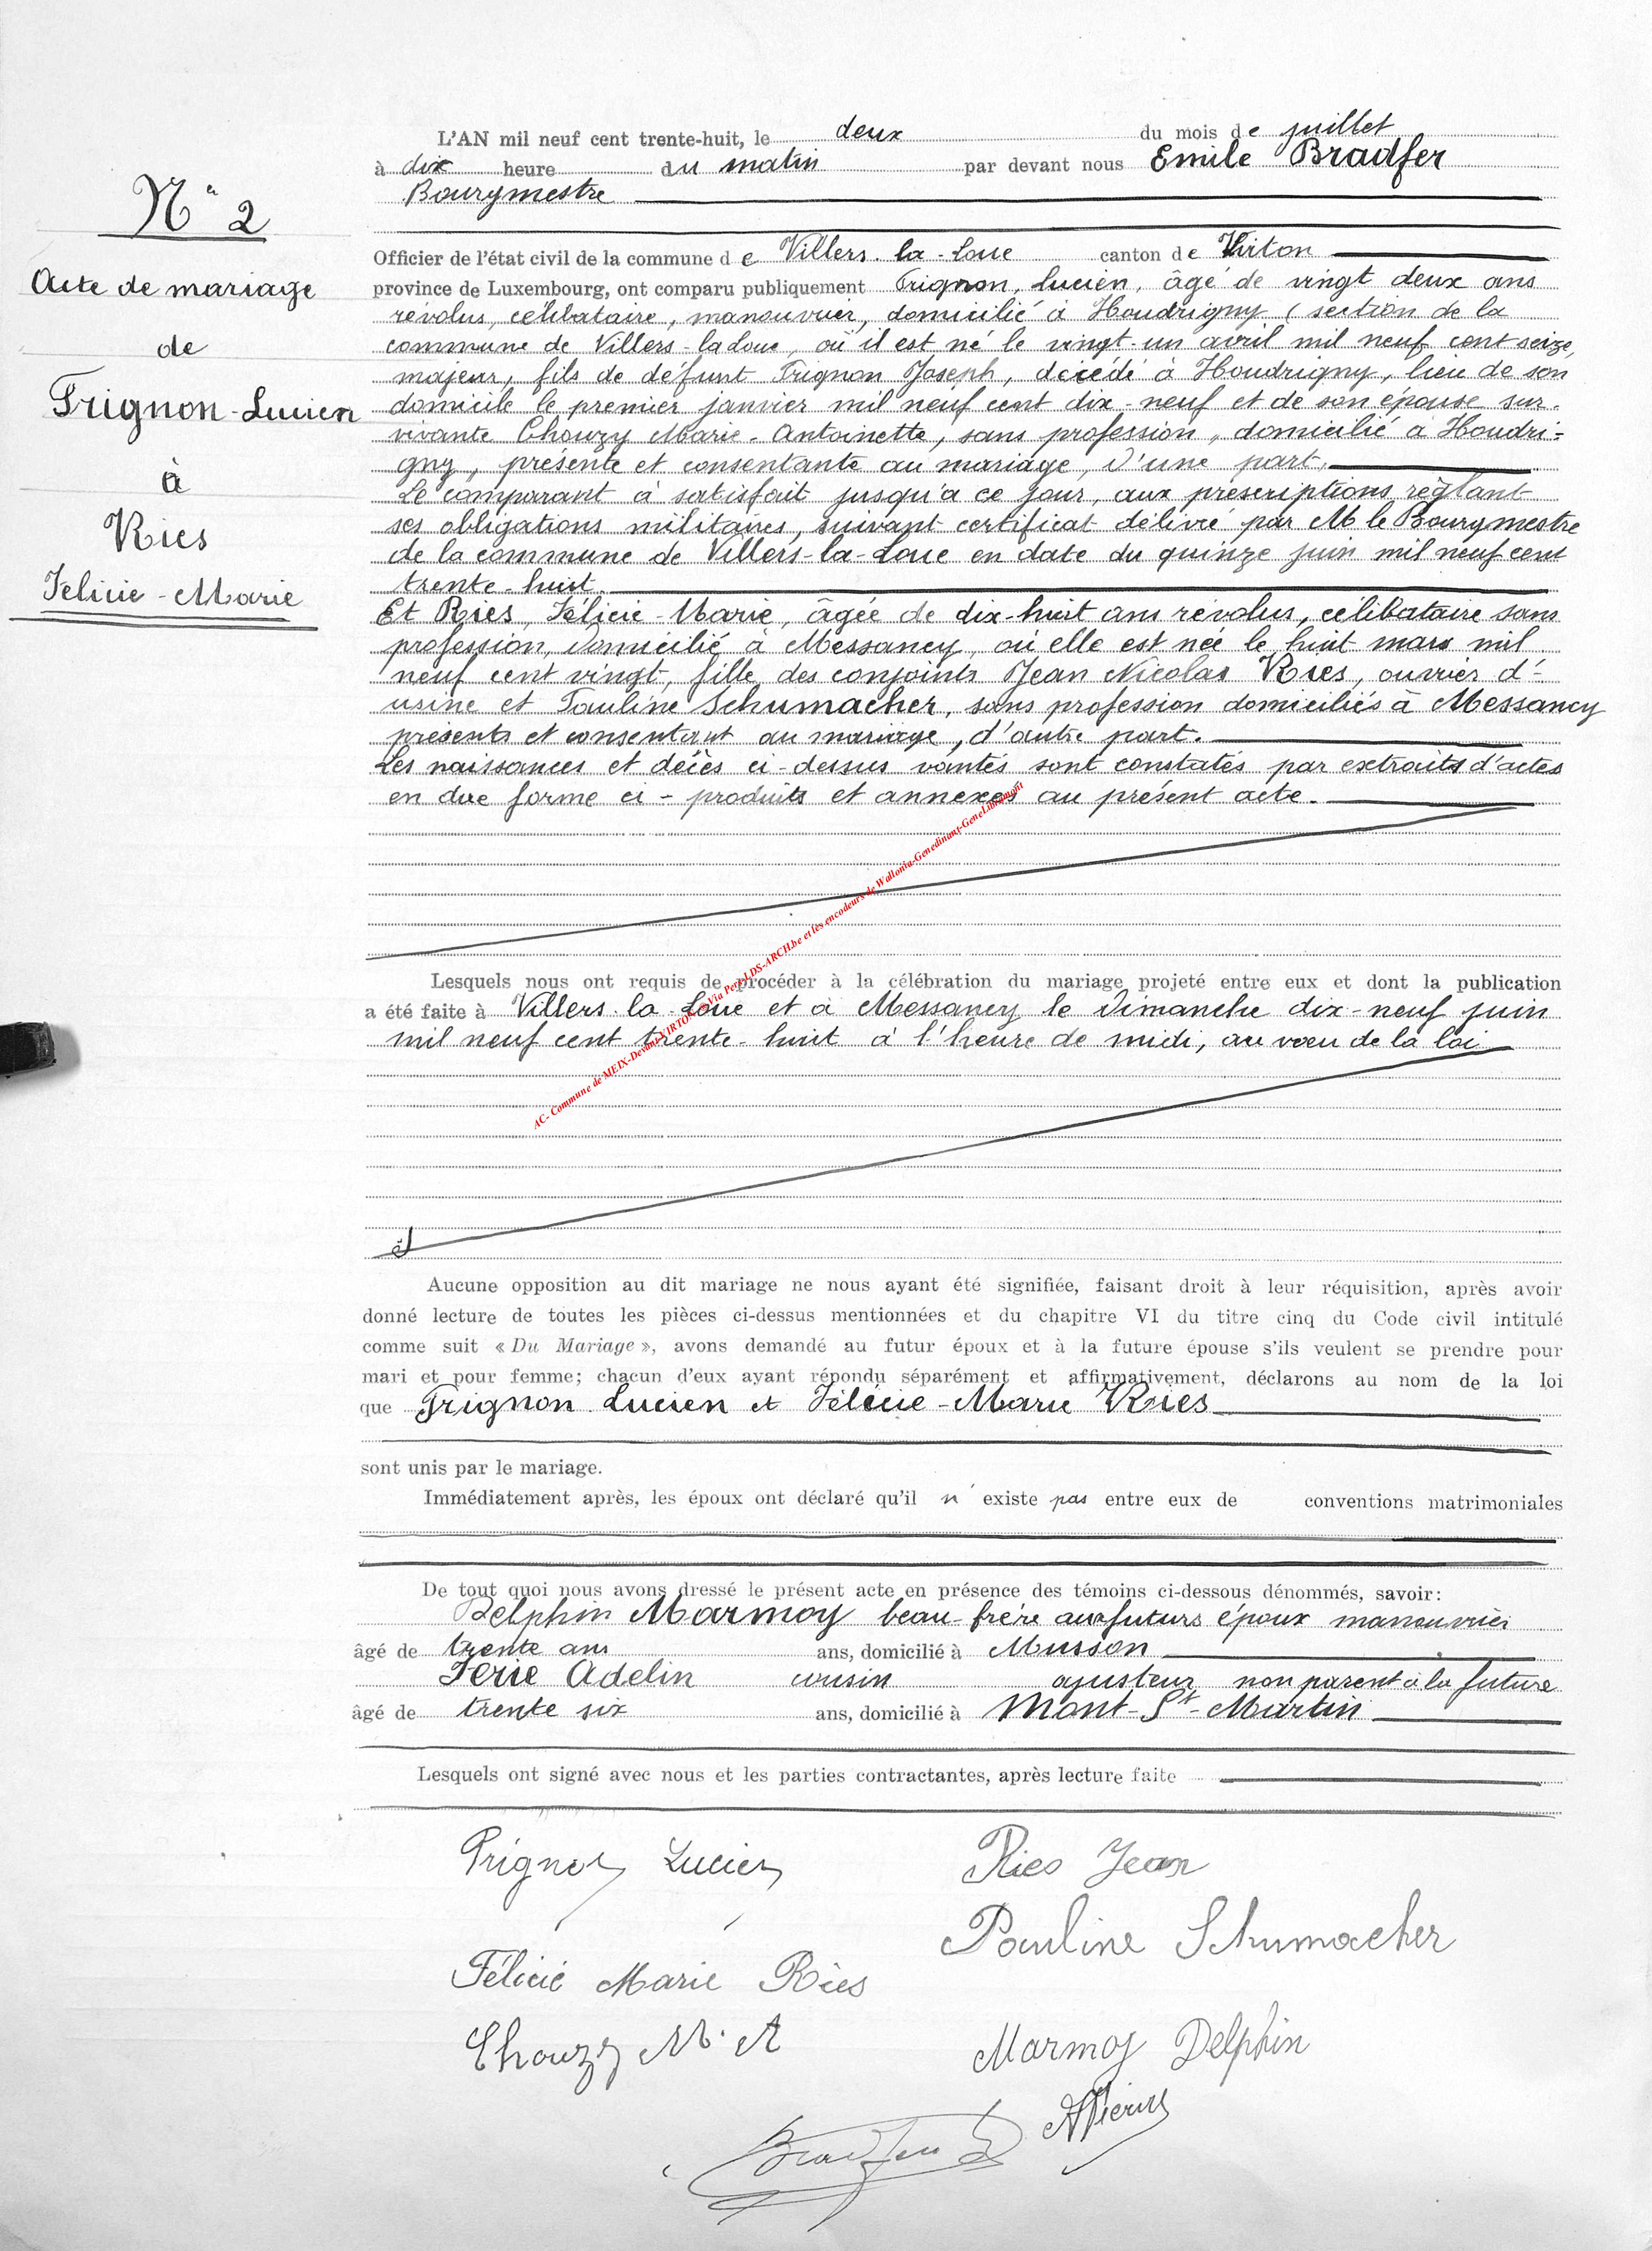 L'AN mil neuf cent trente-huit, le deux du mois de juillet
à dix heure du matin par devant nous Emile Bradfer
Bourgmestre
N° 2
Officier de l'état civil de la commune de Villers-la-Loue canton de Virton
Acte de mariage
province de Luxembourg, ont comparu publiquement Trignon, Lucien, âgé de vingt deux ans
révolus, célibataire, manouvrier, domicilié à Houdrigny (section de la
de
commune de Villers-la Loue, où il est né le vingt-un avril mil neuf cent seize,
majeur, fils de défunt Trignon Joseph, décédé à Houdrigny, lieu de son
Trignon-Lucien
domicile le premier janvier mil neuf cent dix-neuf et de son épouse sur-
vivante Chouzy Marie-Antoinette, sans profession, domicilié à Houdri=
gny, présente et consentante au mariage, d'une part,
à
Le comparant à satisfait jusqu'à ce jour, aux prescriptions réglant
ses obligations militaires, suivant certificat délivré par M le Bourgmestre
Ries
de la commune de Villers-la-Loue en date du quinze juin mil neuf cent
trente-huit.
Félicie-Marie
Et Ries, Félicie-Marie, âgée de dix-huit ans révolus, célibataire sans
profession, domicilié à Messancy, où elle est née le huit mars mil
neuf cent vingt, fille des conjoints Jean Nicolas Ries, ouvrier d'-
usine et Pauline Schumacher, sans profession domiciliés à Messancy
présents et consentant au mariage, d'autre part.
Les naissances et décès ci-dessus vantés sont constatés par extraits d'actes
en due forme ci-produits et annexés au présent acte.
AC- Commune de MEIX-Devant-VIRTON - Via Pers LDS-ARCH.be et les encodeurs de Wallonia-Genedinant-GeneLibramont
Lesquels nous ont requis de procéder à la célébration du mariage projeté entre eux et dont la publication
a été faite à Villers-la-Loue et à Messancy le dimanche dix-neuf juin
mil neuf cent trente-huit à l'heure de midi, au vœu de la loi
et
Aucune opposition au dit mariage ne nous ayant été signifiée, faisant droit à leur réquisition, après avoir
donné lecture de toutes les pièces ci-dessus mentionnées et du chapitre VI du titre cinq du Code civil intitulé
comme suit « Du Mariage », avons demandé au futur époux et à la future épouse s'ils veulent se prendre pour
mari et pour femme; chacun d'eux ayant répondu séparément et affirmativement, déclarons au nom de la loi
que Trignon Lucien et Félicie-Marie Ries
sont unis par le mariage.
Immédiatement après, les époux ont déclaré qu'il n'existe pas entre eux de conventions matrimoniales
De tout quoi nous avons dressé le présent acte en présence des témoins ci-dessous dénommés, savoir:
Delphin Marmoy beau-frère aux futurs époux manouvrier
âgé de trente ans ans, domicilié à Musson
Ferie Adelin cousin ajusteur non parent à la future
âgé de trente six ans, domicilié à Mont-St-Martin
Lesquels ont signé avec nous et les parties contractantes, après lecture faite
Trignon Lucien Ries Jean
Pauline Schumacher
Félicie Marie Ries
Chouzy M. A Marmoy Delphin
Bradfer E